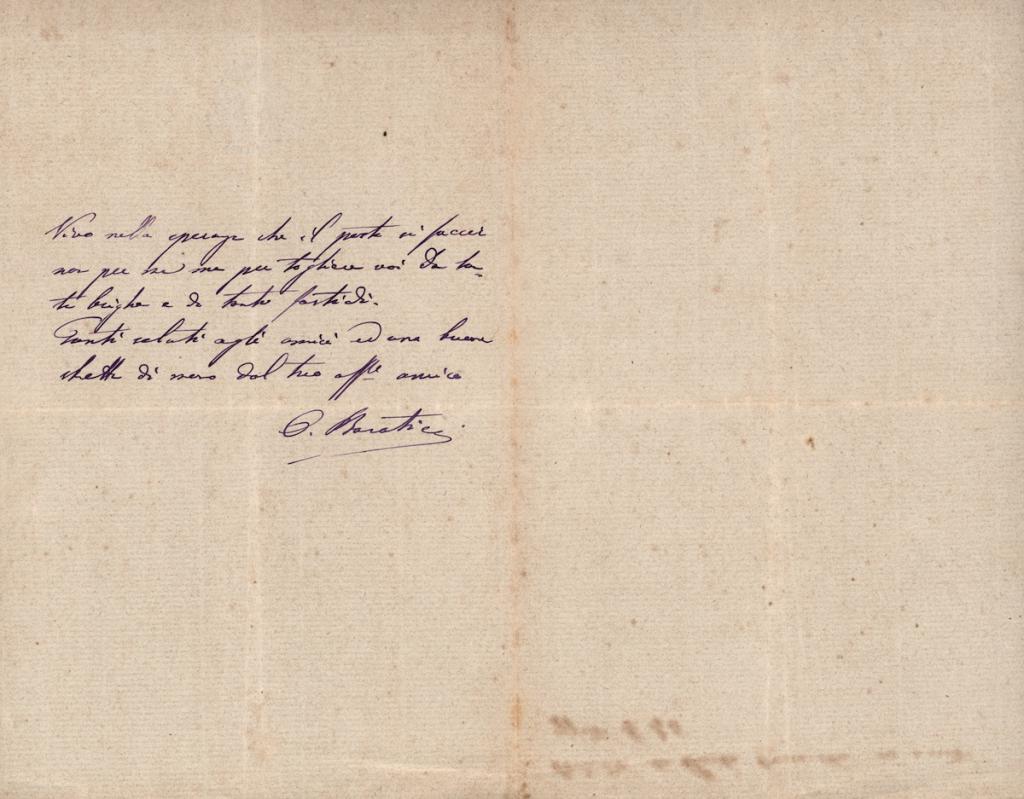 Vivo nella speranza che il porto si facci
non per me ma per togliere voi da ta-
ti brighe e da tanti fastidi.
Tanti saluti agli amici ed una buona
stretta di mano dal tuo aff.te amico
O. Baratieri